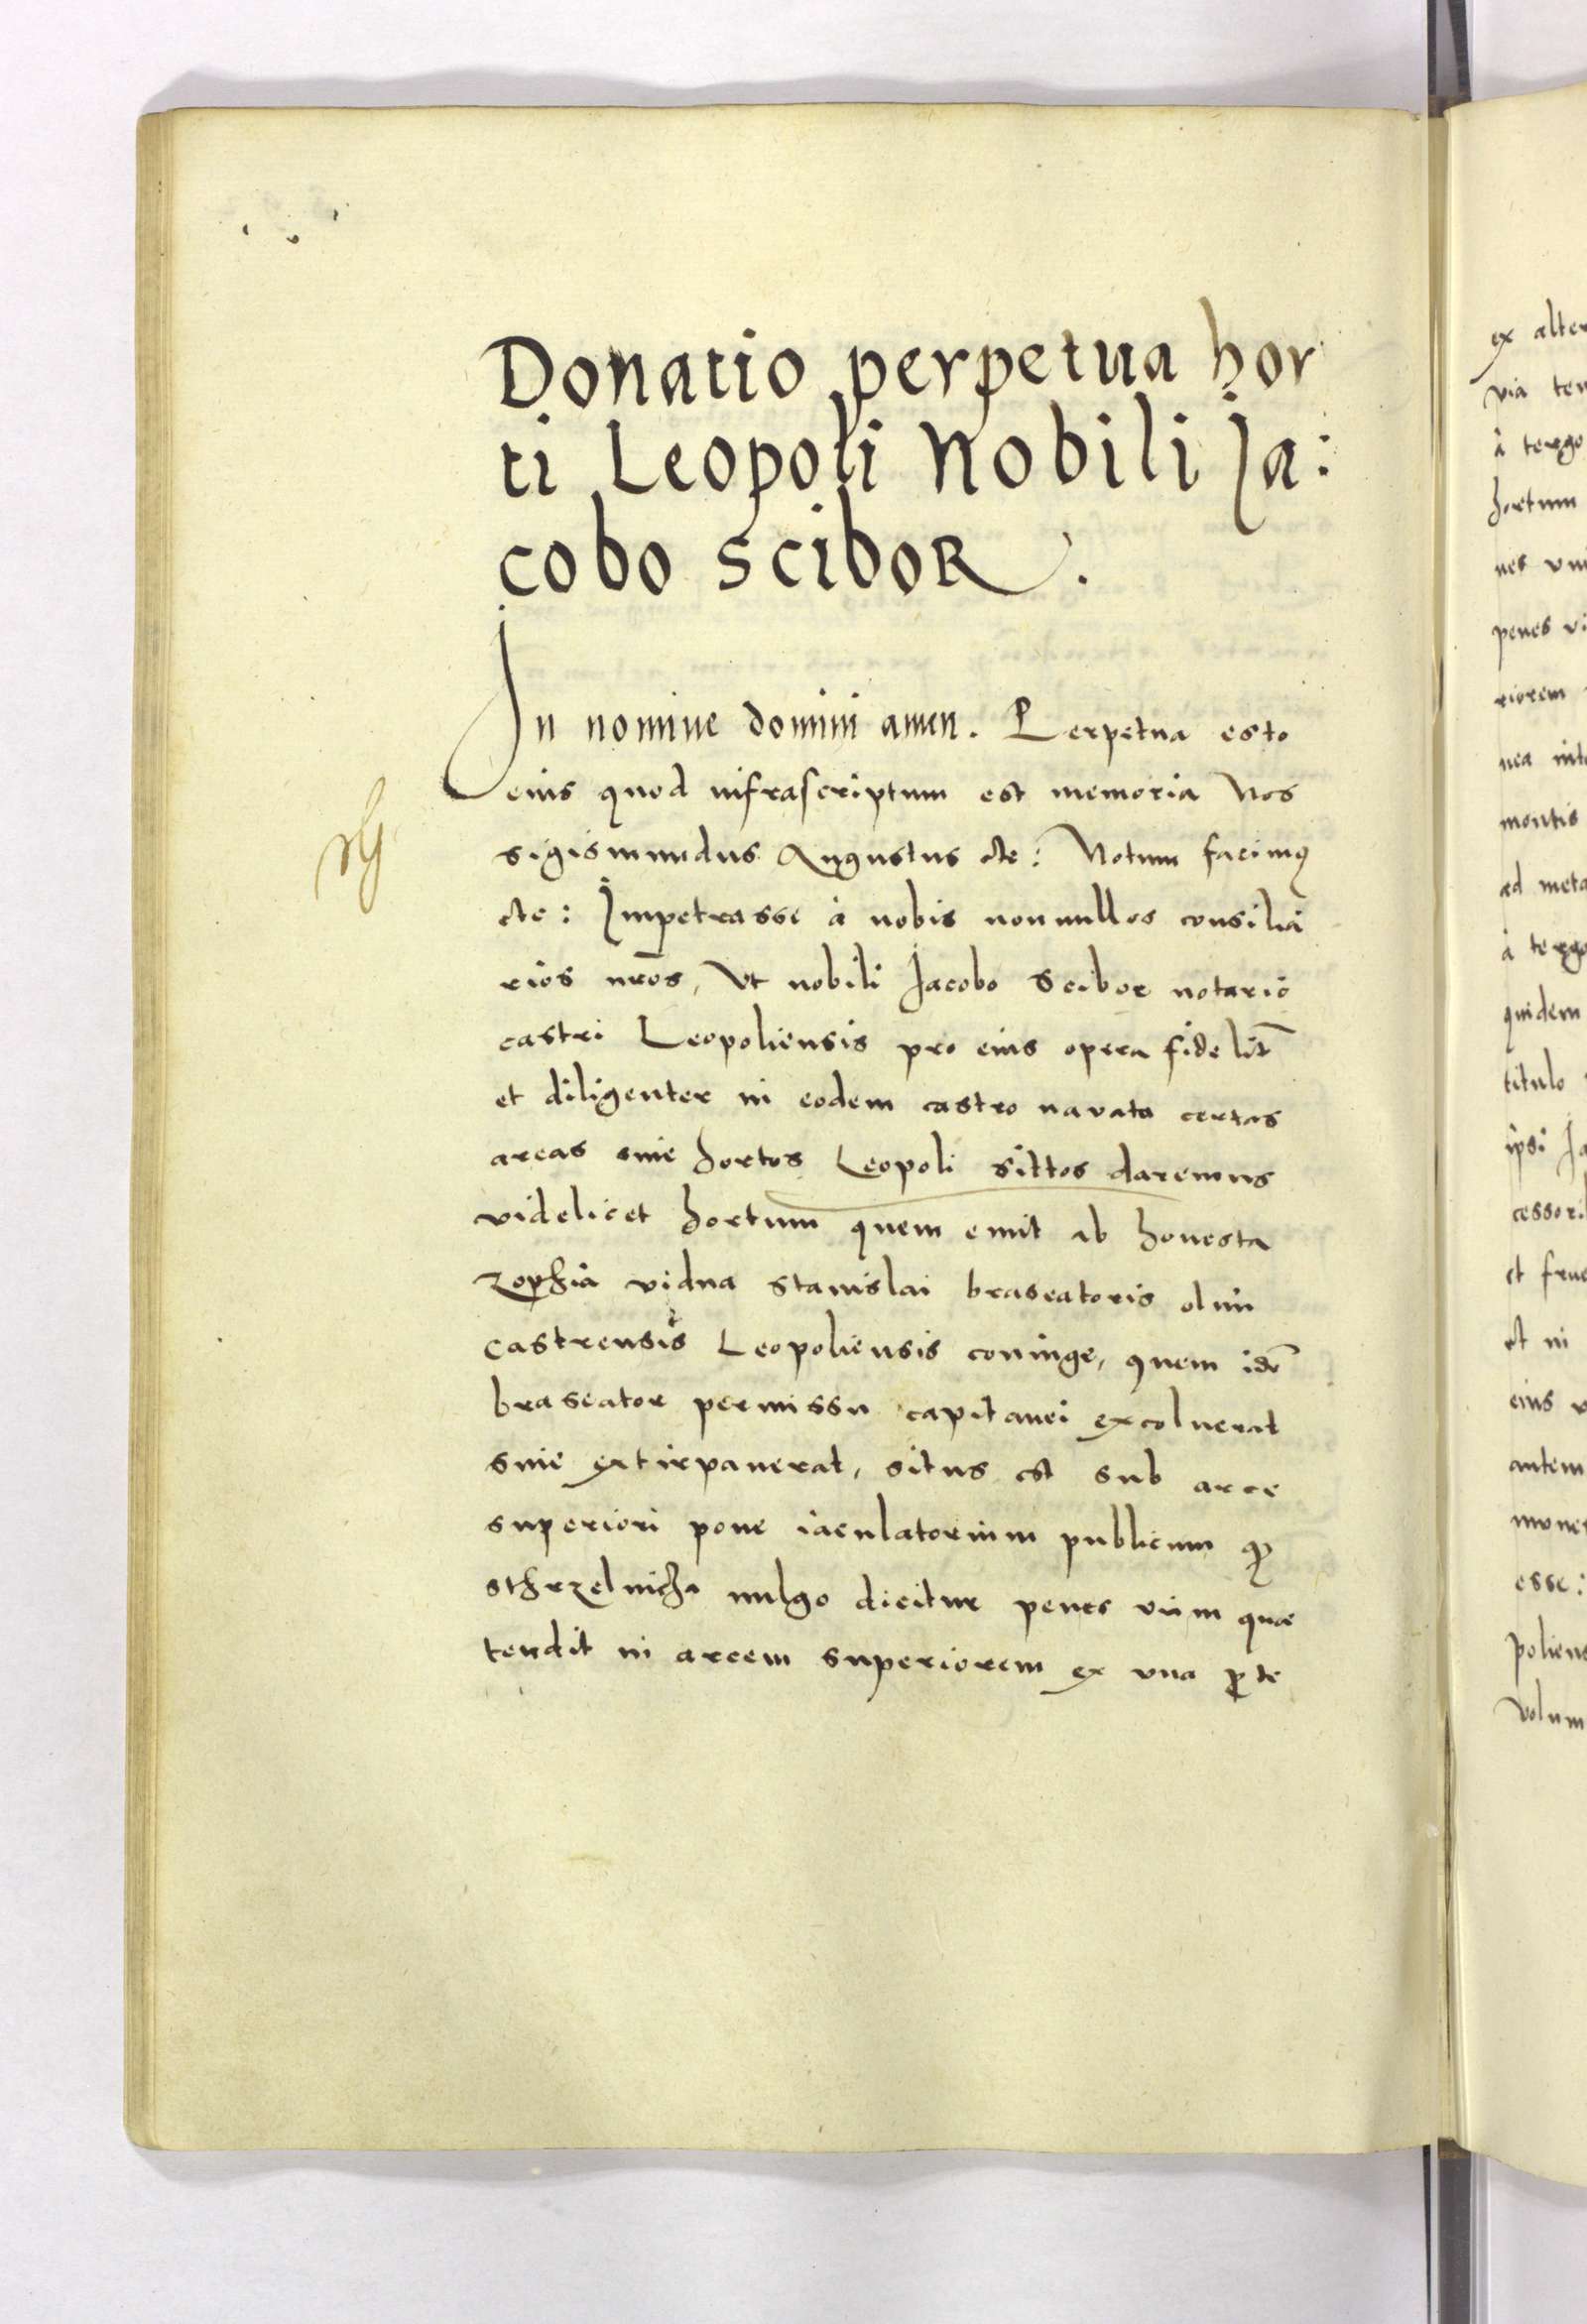 Donatio perpetua hor
ti Leopoli Nobili Ja:
cobo sciboR.
In nomine domini amen. Perpetua esto
eius quod infrascriptum est memoria Nos
sigismundus Augustus etc: Notum facimꝯ
etc: Impetrasse à nobis nonnullos consilia
rios nr̃os, Vt nobili Jacobo Scibor notario
castri Leopoliensis pro eius opera fidelit̃
et diligenter in eodem castro navata certas
areas siue hortos Leopoli sittos daremus
videlicet hortum quem emit ab honesta
Zophia vidua Stanislai braseatoris olim
castrensis Leopoliensis coniuge, quem idẽ
braseator permissu capitanei excoluerat
siue extirpauerat, situs est sub arce
superiori pone iaculatorium publicum qꝫ
sthrzelnicha uulgo dicitur penes viam quae
tendit in arcem superiorem ex vna ꝑte
ex alter
via ten
à tergo
hortum
nes vn
penes vi
riorem
nea int
montis
ad meta
à tergo
quidem
titulo
ipsi Ja
cessori
et frue
et in
eius v
autem
mone
esse:
poliens
Volum